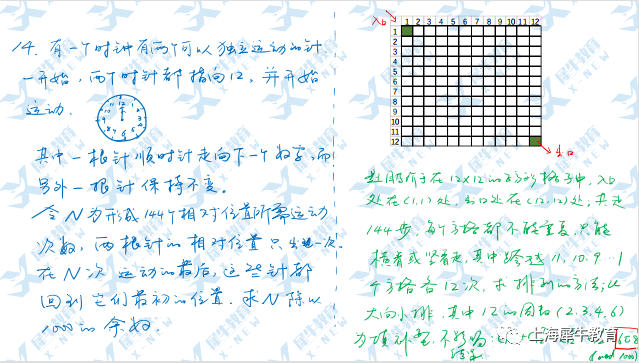 14. 有一个时钟有两个可以独立运动的针.
一开始, 两个时针都指向12, 并开始
运动.
其中一根针顺时针走向下一个数字, 而
另外一根针保持不变。
令N为形成144个相对位置所需运动
次数, 两根针的相对位置只出现一次.
在N次运动的最后, 这些针都
回到它们最初的位置. 求N除以
1000的余数.
入口
1 2 3 4 5 6 7 8 9 10 11 12
1
2
3
4
5
6
7
8
9
10
11
12
出口
在12×12的方形格子中, 入口
处在(1,1)处, 出口处在(12,12)处, 共走
144步, 每个方格都不能重复, 只能
横着或竖着走, 其中跨越11, 10, 9...1
个方格各12次, 求排列的方法; 从
大向小排, 其中12的因数(2,3,4,6)
不能
上海犀牛教育